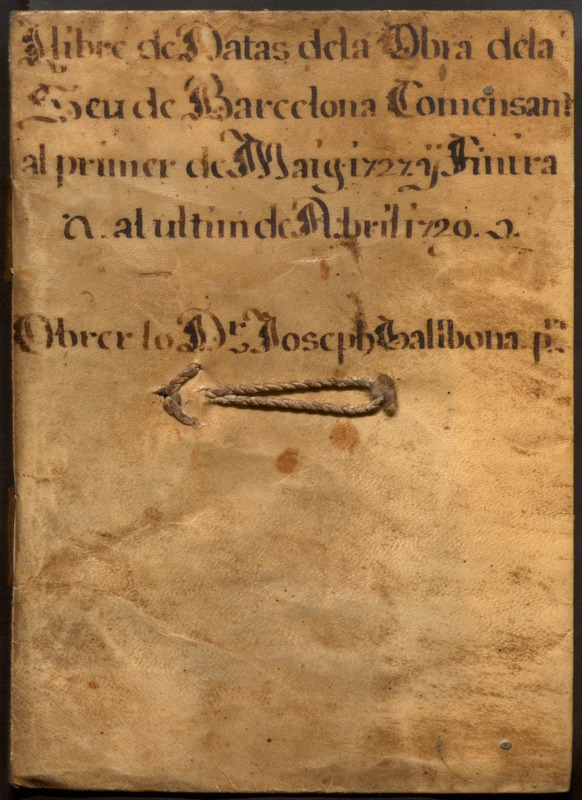 Llibre de Datas dela Obra dela
Seu de Barcelona Comensant
al primer de Maig 1727 y Finira
al ultim de Abril 1729.
Obrer lo Dr. Joseph Gallbona pre.